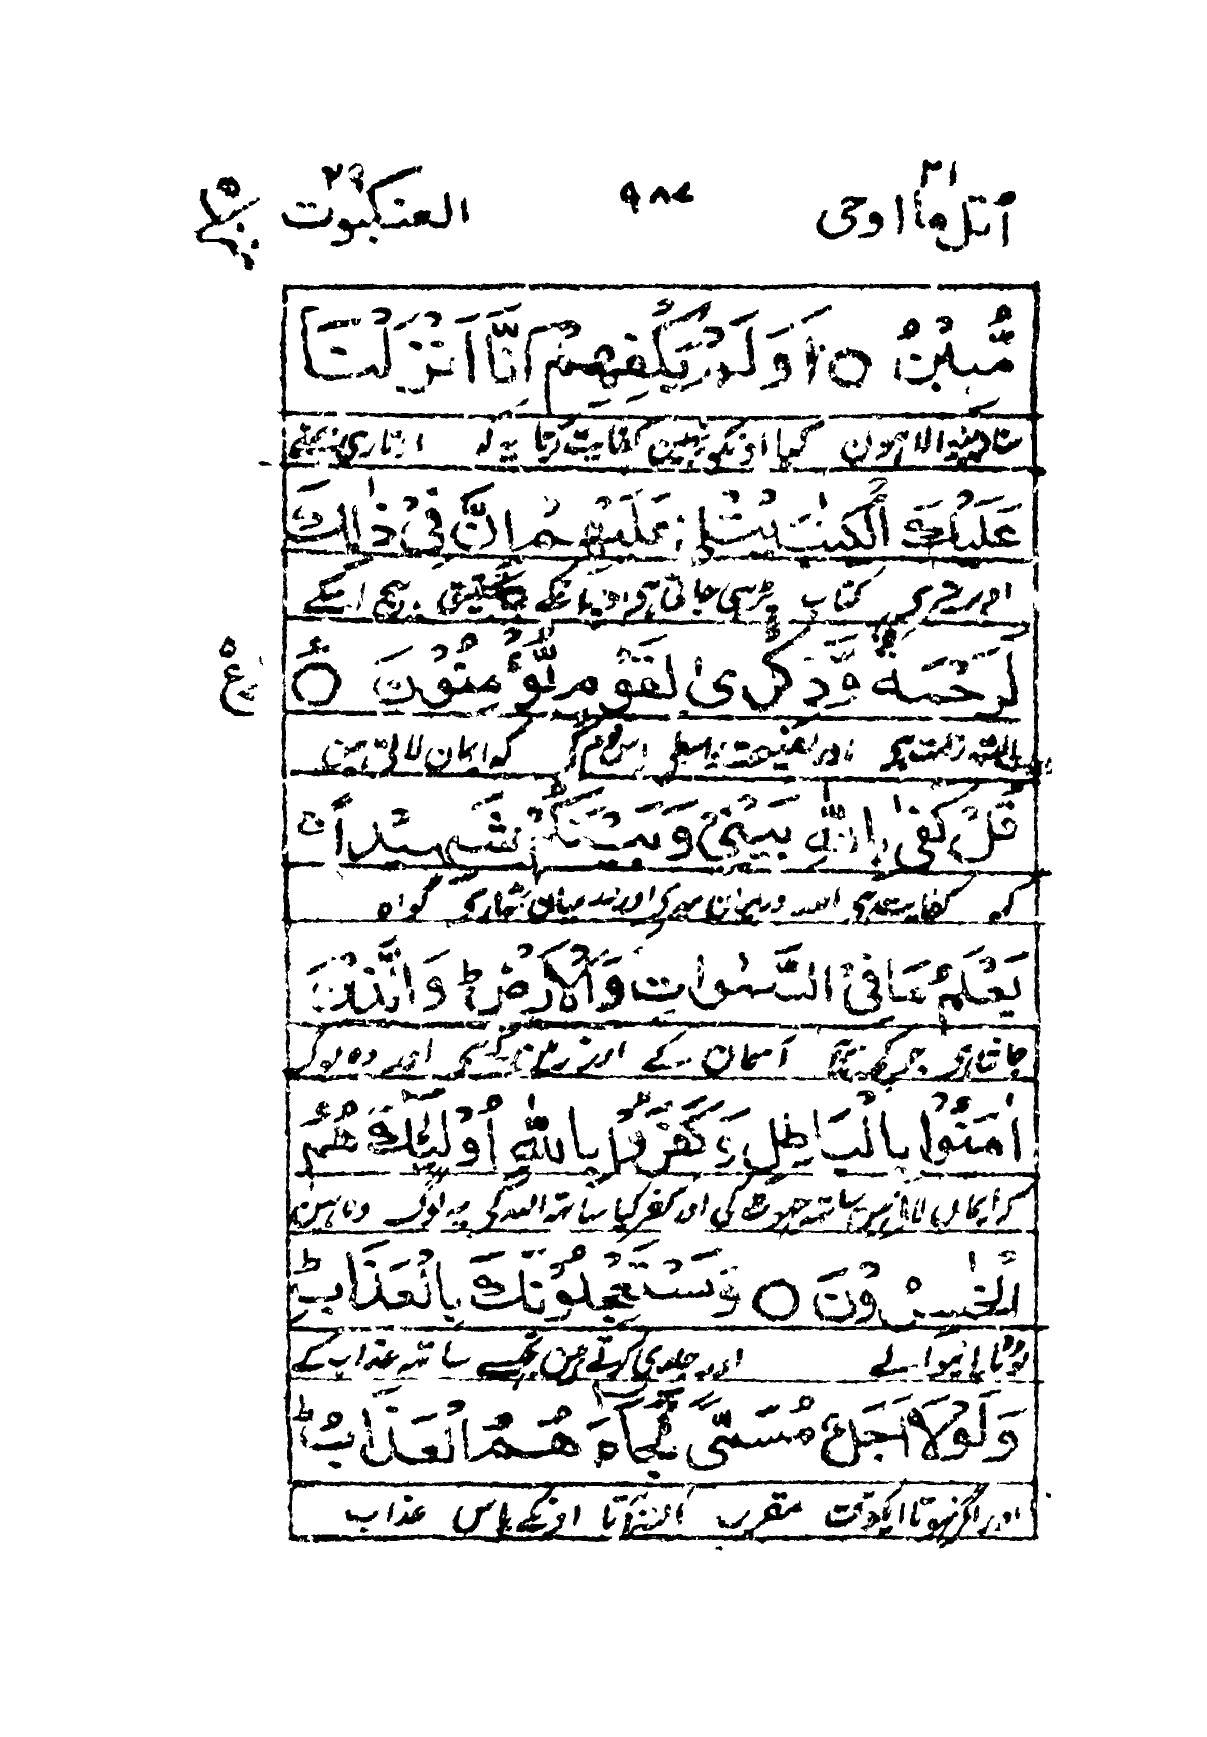 اتل ما اوحی ۲۱ ۹۸۷ العنکبوت ۲۹
مُّبِیْنٌ ○ اَوَلَمْ یَکْفِهِمْ اَنَّا اَنْزَلْنَا
کیا اونکو نہین کفایت کرتا یہ کہ اوتاری ہمنے
عَلَیْكَ الْکِتٰبَ یُتْلٰی عَلَیْهِمْ اِنَّ فِیْ ذٰلِكَ
اوپر تیری کتاب پڑہی جاتی ہی اوپر اونکے تحقیق بیچ اسکے
لَرَحْمَةً وَّذِکْرٰی لِقَوْمٍ یُّؤْمِنُوْنَ ○
البتہ رحمت ہی اور نصیحت واسطی اس قوم کہ ایمان لاتی ہین
قُلْ کَفٰی بِاللّٰهِ بَیْنِیْ وَبَیْنَکُمْ شَهِیْدًا
کہہ کفایت ہی اللہ درمیان میری اور درمیان تمہاری گواہ
یَعْلَمُ مَا فِی السَّمٰوٰتِ وَالْاَرْضِ ط وَالَّذِیْنَ
جانتا ہی جو کچہ بیچ آسمان کے اور زمین کے ہی اور وہ لوگ
اٰمَنُوْا بِالْبَاطِلِ وَکَفَرُوْا بِاللّٰهِ اُولٰٓئِكَ هُمُ
کہ ایمان لائی ہین ساتہ جہوٹ کی اور کفر کیا ساتہ اللہ کی یہ لوگ وہ ہین
الْخٰسِرُوْنَ ○ وَیَسْتَعْجِلُوْنَكَ بِالْعَذَابِ ط
ٹوٹا پانیوالے اور جلدی کرتے ہین تجہسے ساتہ عذاب کے
وَلَوْلَا اَجَلٌ مُّسَمًّی لَّجَآءَهُمُ الْعَذَابُ ط
اور اگر نہوتا ایک وقت مقرر البتہ آتا اونکے پاس عذاب